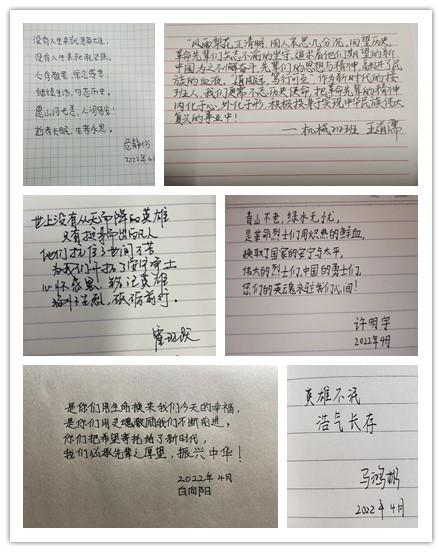 没有人生来就是英雄，
没有人生来就坚强。
心有敬畏，常念感恩，
继续生活，勿忘历史。
愿山河无恙，人间皆安！
逝者长眠，生者永思。
2022年4月
"风雨梨花正清明，用人寄思几分沉。回望历史，
革命先辈们矢志不渝的坚守，追求着他们期望的新
中国为之不懈奋斗，先辈们的思想与精神，融进了民
族的血液，"道阻且远，笃行可至"作为新时代的接
班人，我们更需不忘历史使命，把革命先辈的精神
内化于心，外化于形，积极投身于实现中华民族伟大
复兴的事业中！
——机械 班 王道儒
世上没有从天而降的英雄
只有挺身而出的凡人
他们抗住了世间不苦
为我们开拓了安宁
心怀感恩，铭记英雄
砥砺前行。
青山不老，绿水无忧，
是革命烈士们用炽热的鲜血，
换取了国家的安宁与太平，
伟大的烈士们，中国的勇士们，
您们的英魂永驻我们心间！
许明宇
2022年4月
是你们用生命换来我们今天的幸福，
是你们用灵魂激励我们不断前进，
你们把希望寄托给了新时代，
我们必承先辈之厚望，振兴中华！
2022年4月
白向阳
英雄不泯
浩气长存
马鸿彬
2022年4月